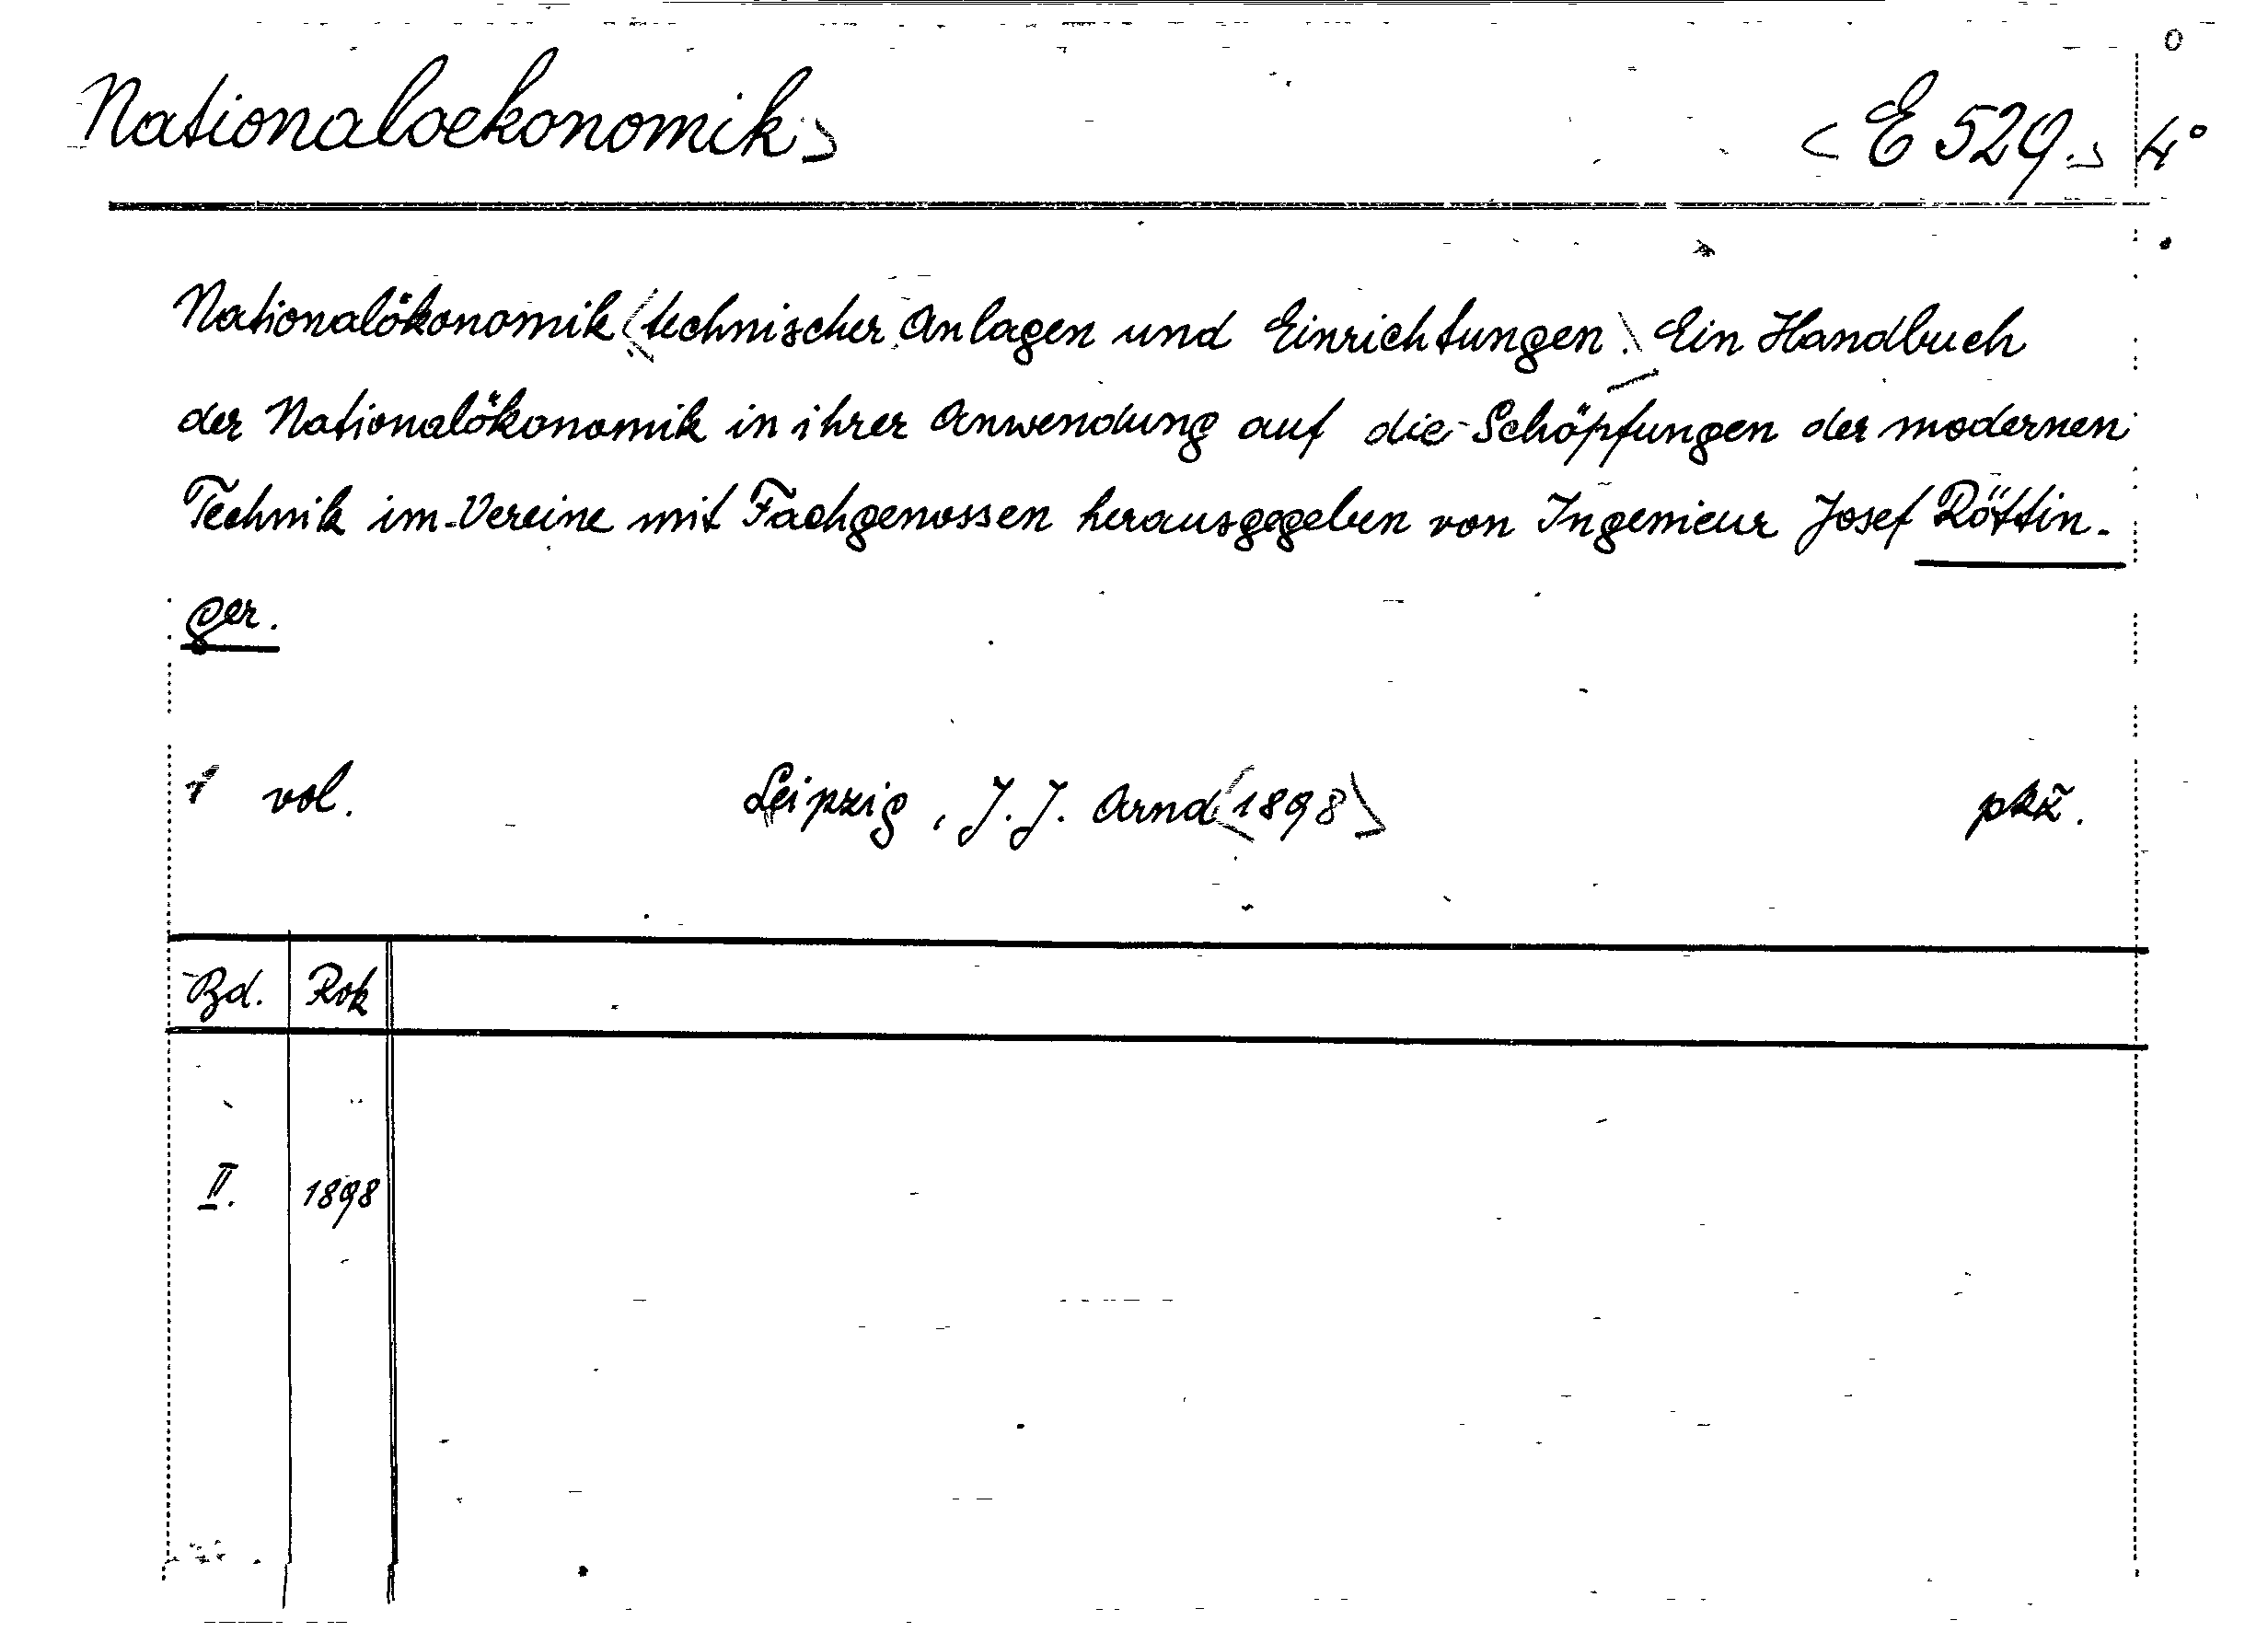 Nationaloekonomik> <E 529.> 4°
Nationalökonomik <technischer Anlagen und Einrichtungen.> Ein Handbuch
der Nationalökonomik in ihrer Anwendung auf die Schöpfungen der modernen
Technik im Vereine mit Fachgenossen herausgegeben von Ingenieur Josef Röttin-
ger.
1 vol. Leipzig, J. J. Arnd <1898> pkž.
Bd. Rok
II. 1898